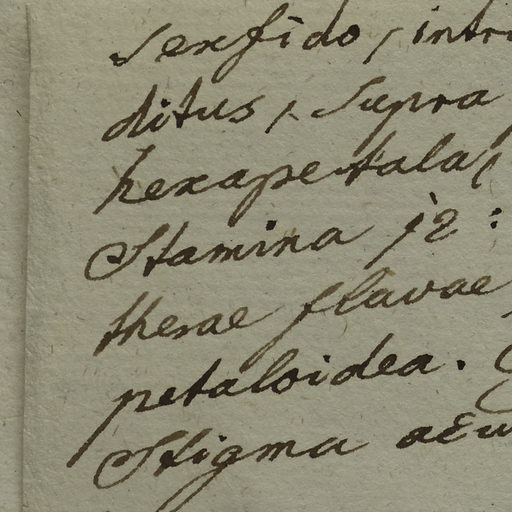 sexfido, intr
ditus, supra
hexapetala,
Stamina 12:
therae flavae
petaloidea.
Stigma acu